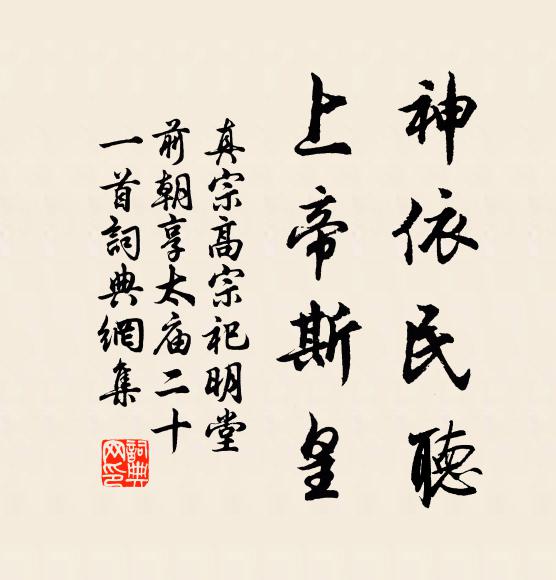 神依民聽
上帝斯皇
真宗高宗祀明堂
前朝享太庙二十
一首詞典網集
詞典網印